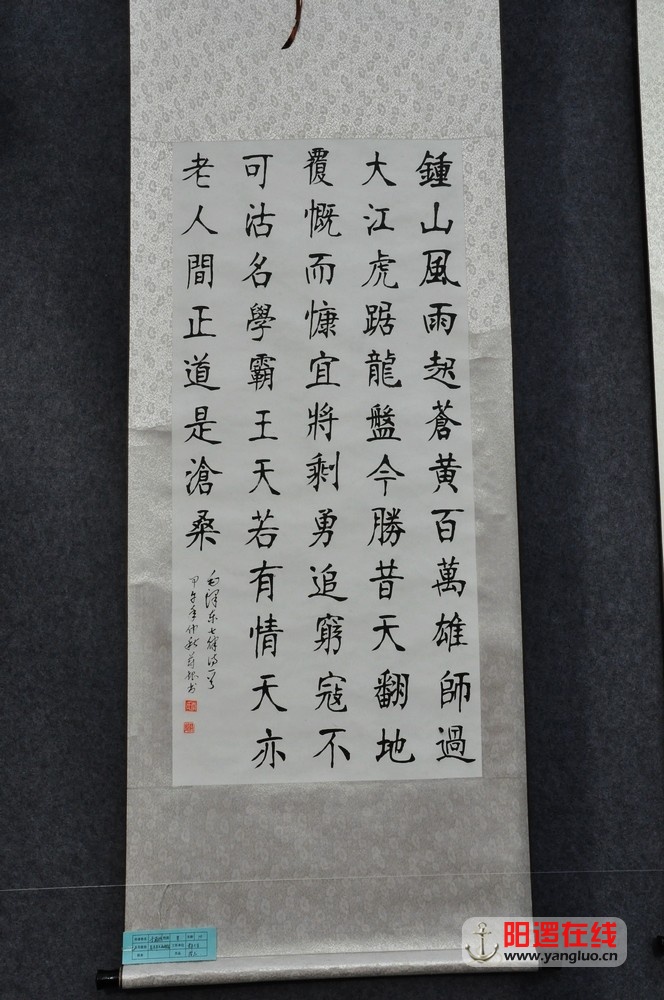 鍾山風雨起蒼黄百萬雄師過
大江虎踞龍盤今勝昔天翻地
覆慨而慷宜將剩勇追窮寇不
可沽名學霸王天若有情天亦
老人間正道是滄桑
毛澤东七律诗一首
甲午年仲秋
阳逻在线
www.yangluo.cn